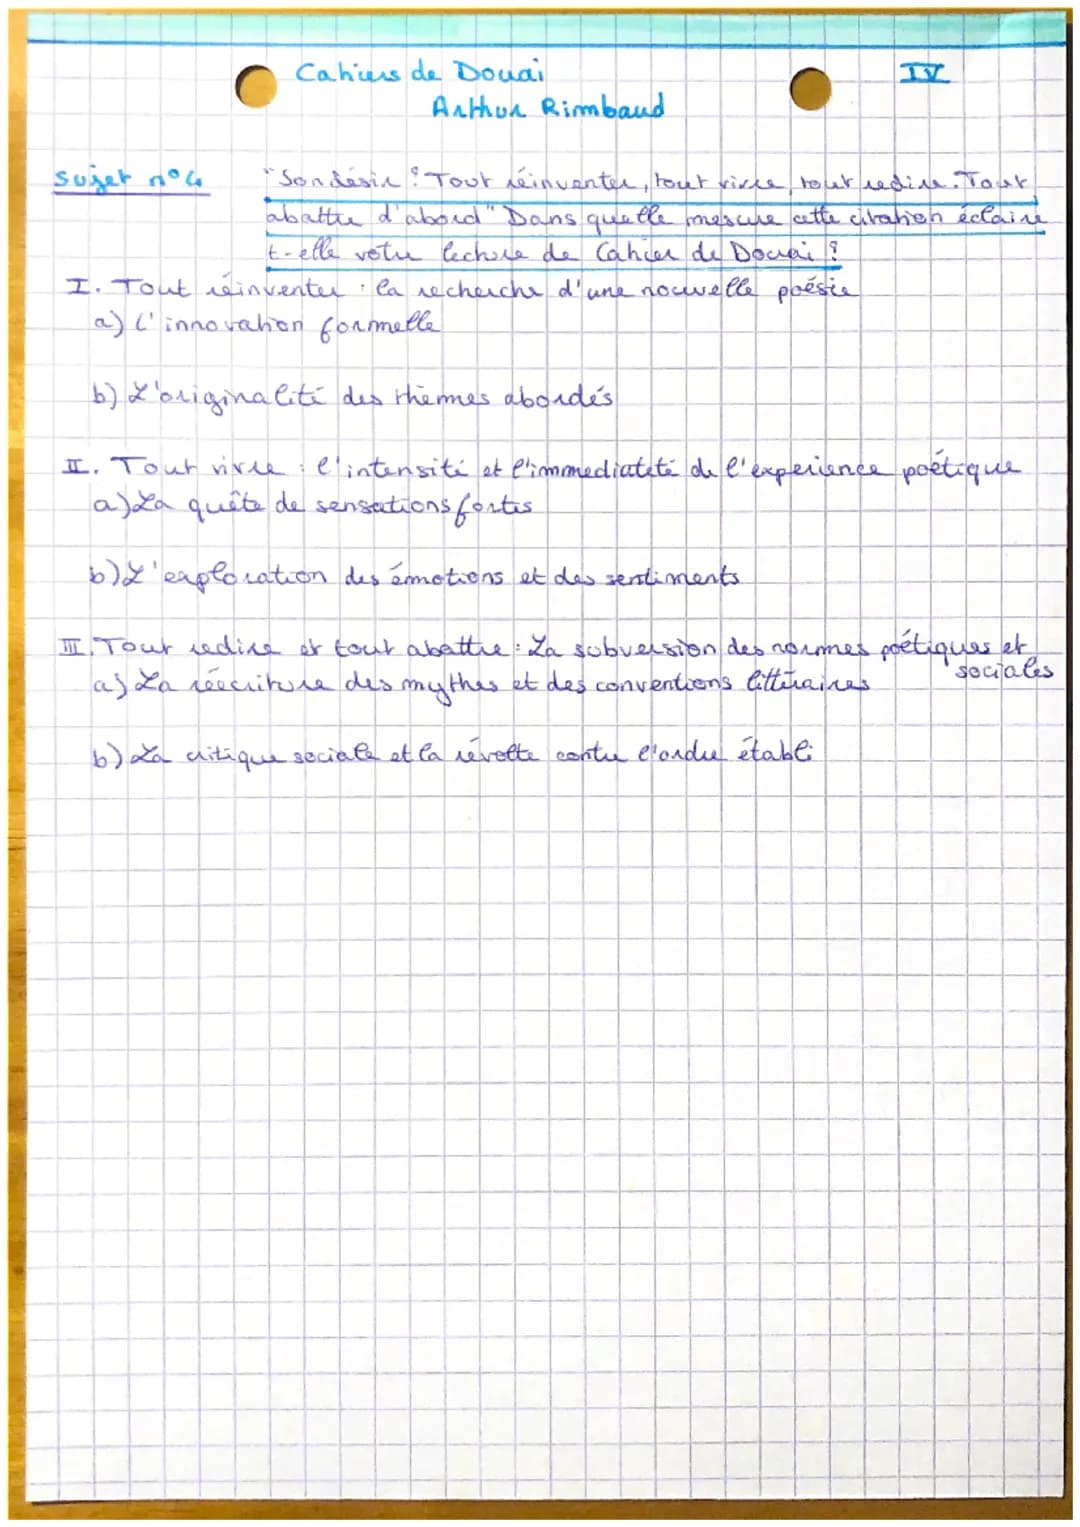 Cahiers de Douai
IV
Arthur Rimbaud
Sujet n°4
"Son désir ? Tout réinventer, tout vivre, tout redire. Tout
abattre d'abord" Dans quelle mesure cette citation éclaire
t-elle votre lecture de Cahier de Douai ?
I. Tout réinventer : la recherche d'une nouvelle poésie
a) L'innovation formelle
b) L'originalité des thèmes abordés
II. Tout vivre : l'intensité et l'immediateté de l'experience poétique
a) La quête de sensations fortes
b) L'exploration des émotions et des sentiments
III. Tout redire et tout abattre : La subversion des normes poétiques et
sociales
a) La réécriture des mythes et des conventions littéraires
b) La critique sociale et la révolte contre l'ordre établi